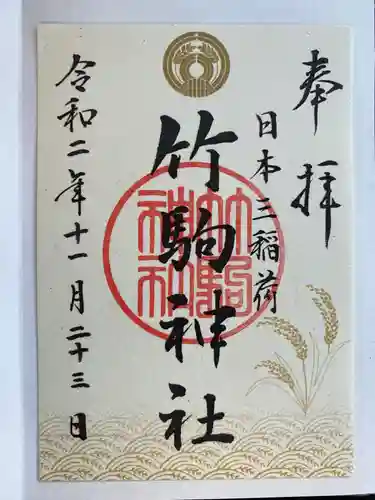 奉拝
日本三稲荷
竹駒神社
竹駒神社
令和二年十一月二十三日